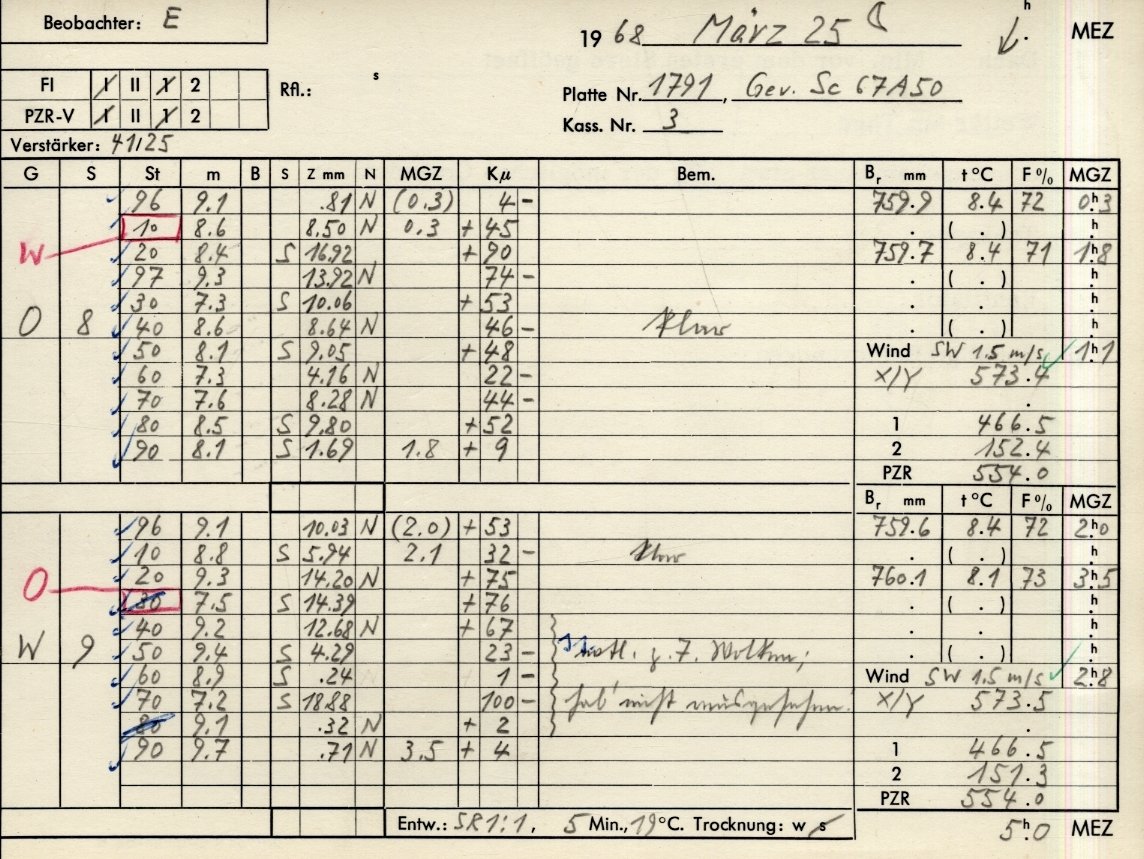 Beobachter: E
19 68 März 25 h MEZ
FI I II 1 2 Rfl.: s
Platte Nr. 1791, Gev. Sc 67A50
PZR-V I II 1 2
Kass. Nr. 3
Verstärker: 41/25
G S St m B S Z mm N MGZ Kμ Bem. Br mm t °C F % MGZ
96 9.1 .81 N (0.3) 4 - 759.9 8.4 72 0h.3
10 8.6 8.50 N 0.3 + 45 . ( . ) h.
W 20 8.4 S 16.92 + 90 759.7 8.4 71 1h.8
97 9.3 13.92 N 74 - . ( . ) h.
30 7.3 S 10.06 + 53 . . h.
O 8 40 8.6 8.64 N 46 - klar . ( . ) h.
50 8.1 S 9.05 + 48 Wind SW 1.5 m/s 1h.1
60 7.3 4.16 N 22 - X/Y 573.4
70 7.6 8.28 N 44 - .
80 8.5 S 9.80 + 52 1 466.5
90 8.1 S 1.69 1.8 + 9 2 152.4
PZR 554.0
Br mm t °C F % MGZ
96 9.1 10.03 N (2.0) + 53 759.6 8.4 72 2h.0
10 8.8 S 5.94 2.1 32 - klar . ( . ) h.
O 20 9.3 14.20 N + 75 760.1 8.1 73 3h.5
30 7.5 S 14.39 + 76 . ( . ) h.
40 9.2 12.68 N + 67 . . h.
W 9 50 9.4 S 4.29 23 - z. T. Wolken; . ( . ) h.
60 8.9 S .24 1 - Wind SW 1.5 m/s 2h.8
70 7.2 S 18.88 100 - hab' nicht rausgesehen. X/Y 573.5
80 9.1 .32 N + 2 .
90 9.7 .71 N 3.5 + 4 1 466.5
2 151.3
PZR 554.0
Entw.: SR 1:1, 5 Min., 19 °C. Trocknung: w s 5h.0 MEZ